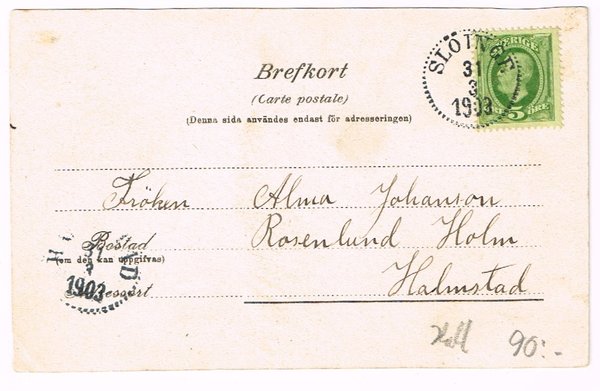 Brefkort
(Carte postale)
(Denna sida användes endast för adresseringen)
SLÖINGE
31
3
1903
SVERIGE
5 ÖRE
Fröken Alma Johanson
Bostad Rosenlund Holm
(om den kan uppgifvas)
Halmstad
1903
90:-